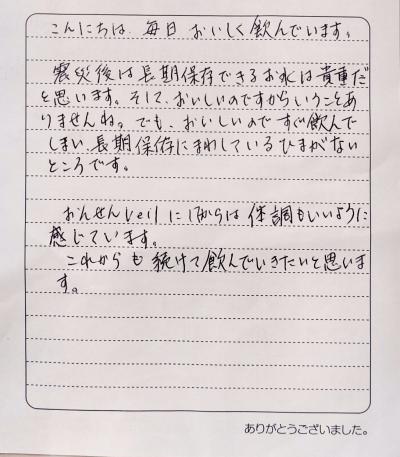 こんにちは、毎日おいしく飲んでいます。
震災後は長期保存できるお水は貴重だ
と思います。そして、おいしいのですからいうことあ
りませんね。でも、おいしいのですぐ飲んで
しまい、長期保存にまわしているひまがない
ところです。
おんせんveilにしてからは体調もいいように
感じています。
これからも続けて飲んでいきたいと思いま
す。
ありがとうございました。